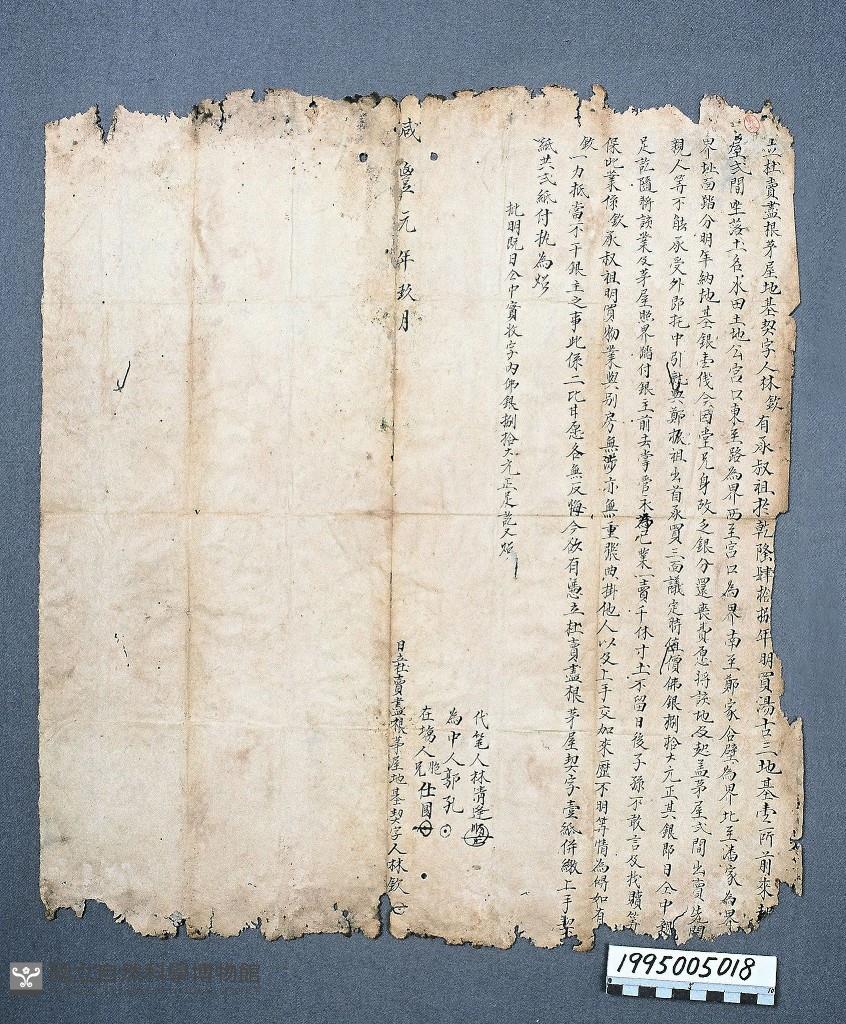 立杜賣盡根茅屋地基契字人林欽有承叔祖於乾隆肆拾捌年明買湯古三地基壹所前來
屋弍間坐落土名水田土地公宮口東至路為界西至宮口為界南至鄭家合壁為界北至潘家為界
界址面踏分明年納地基銀壹伐今因堂兄身故乏銀分還喪費愿將該地及起盖茅屋弍間出賣先問
親人等不能承受外即托中引就與鄭振祖出首承買三面議定時值價佛銀捌拾大元正其銀即日仝中
足訖隨將該業及茅屋照界踏付銀主前去掌管永為己業一賣千休寸土不留日後子孫不敢言及找贖等
保此業係欽承叔祖明買物業與別房無涉亦無重張典掛他人以及上手交加來歷不明等情為碍如有
欽一力抵當不干銀主之事此係二比甘愿各無反悔今欲有憑立杜賣盡根茅屋契字壹紙併繳上手契
紙共弍紙付執為炤
批明既日仝中實收字內佛銀捌拾大元正足訖又炤
代筆人林清
為中人郭孔
在塲人胞兄仕國
咸豐元年玖月 日立杜賣盡根茅屋地基契字人林欽
1995005018
國立自然科學博物館